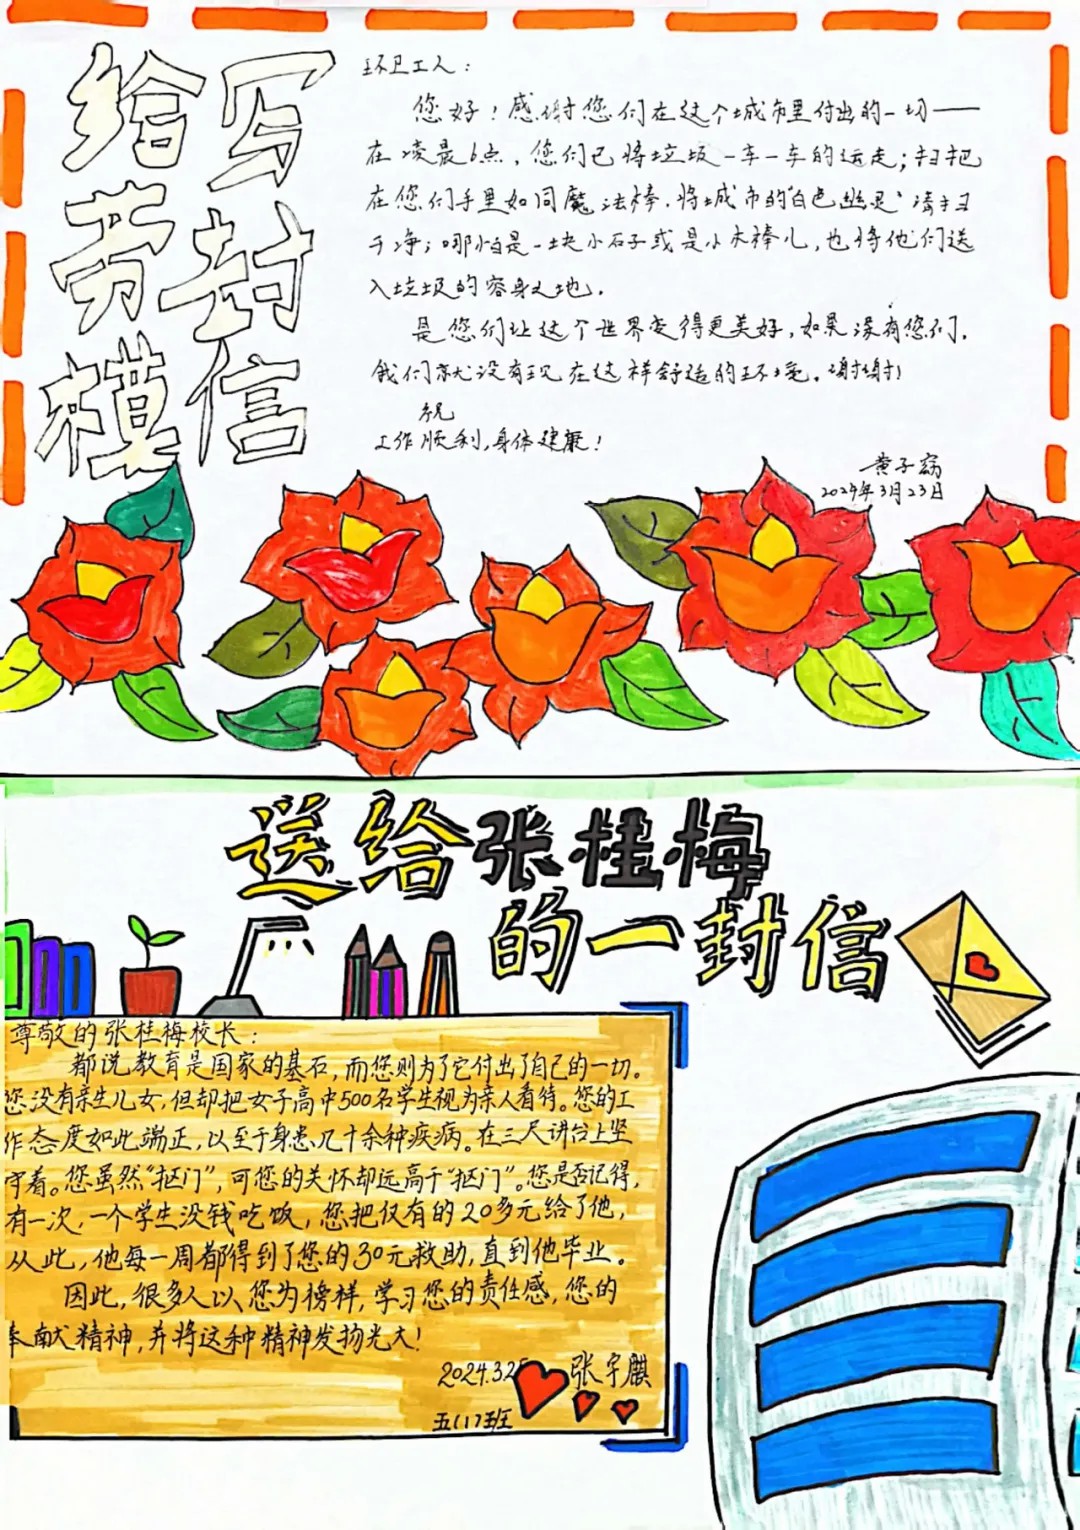 给写
劳封
模信
环卫工人：
您好！感谢您们在这个城市里付出的一切——
在凌晨6点，您们已将垃圾一车一车的运走；扫把
在您们手里如同魔法棒，将城市的“白色幽灵”清扫
干净；哪怕是一块小石子或是小木棒儿，也将他们送
入垃圾的容身之地。
是您们让这个世界变得更美好，如果没有您们，
我们就没有现在这样舒适的环境。谢谢！
祝
工作顺利，身体健康！
黄子
2024年3月23日
送给张桂梅
的一封信
尊敬的张桂梅校长：
都说教育是国家的基石，而您则为了它付出了自己的一切。
您没有亲生儿女，但却把女子高中500名学生视为亲人看待。您的工
作态度如此端正，以至于身患几十余种疾病。在三尺讲台上坚
守着。您虽然“抠门”，可您的关怀却远高于“抠门”。您是否记得，
有一次，一个学生没钱吃饭，您把仅有的20多元给了他，
从此，他每一周都得到了您的30元救助，直到他毕业。
因此，很多人以您为榜样，学习您的责任感，您的
奉献精神，并将这种精神发扬光大！
2024.3.25 张宇麒
五(1)班